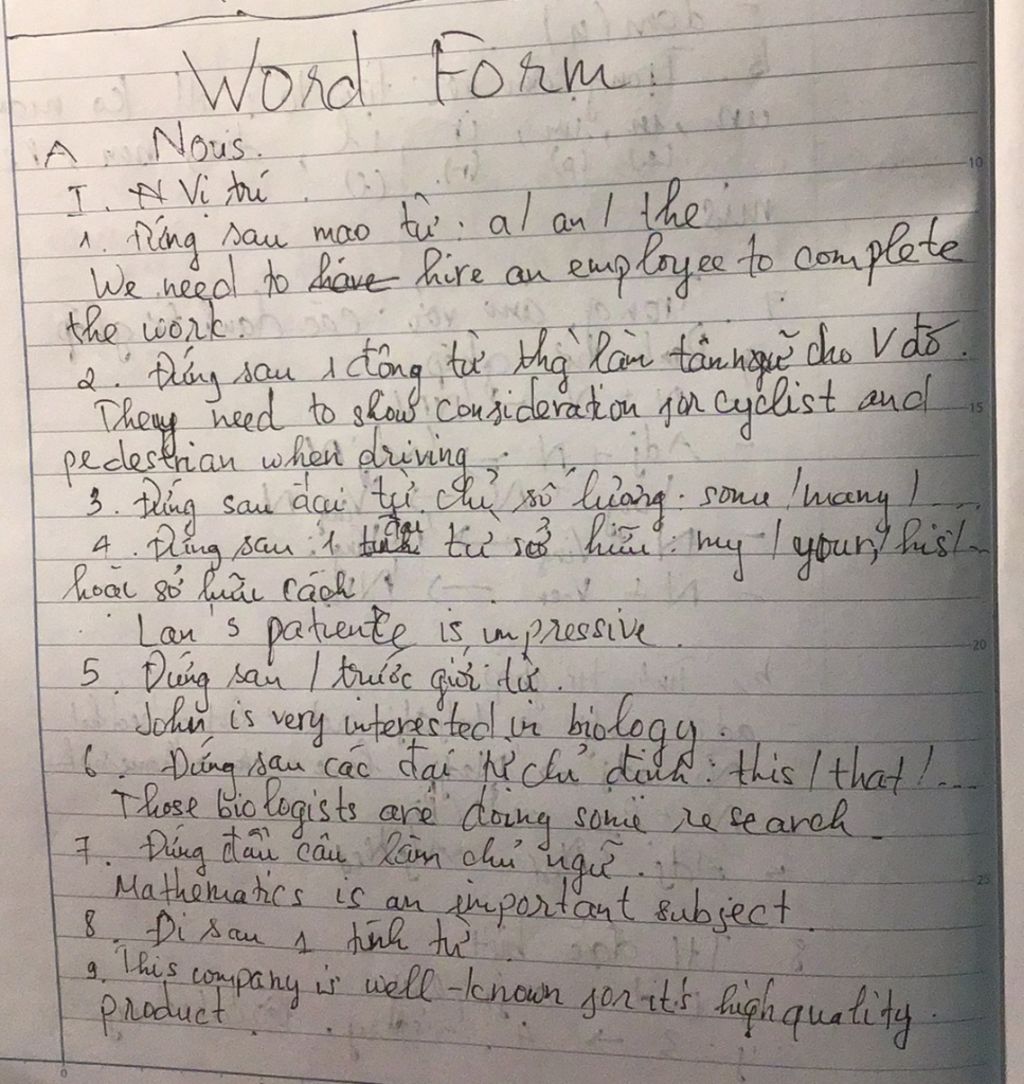 Word Form.
A Nous.
I. N Vị trí
1. Đứng sau mao từ: a/ an/ the
We need to have hire an employee to complete
the work.
2. Đứng sau 1 động từ thg làm tân ngữ cho V đó.
They need to show consideration for cyclist and
pedestrian when driving.
3. Đứng sau đại từ chỉ số lượng: some/many/...
4. Đứng sau 1 đại từ sở hữu: my/your/his/...
hoặc sở hữu cách
Lan's patiente is impressive.
5. Đứng sau / trước giới từ.
John is very interested in biology.
6. Đứng sau các đại từ chỉ định: this/that/...
Those biologists are doing some research.
7. Đứng đầu câu làm chủ ngữ.
Mathematics is an important subject.
8. Đi sau 1 tính từ.
9. This company is well-known for it's high quality
product.